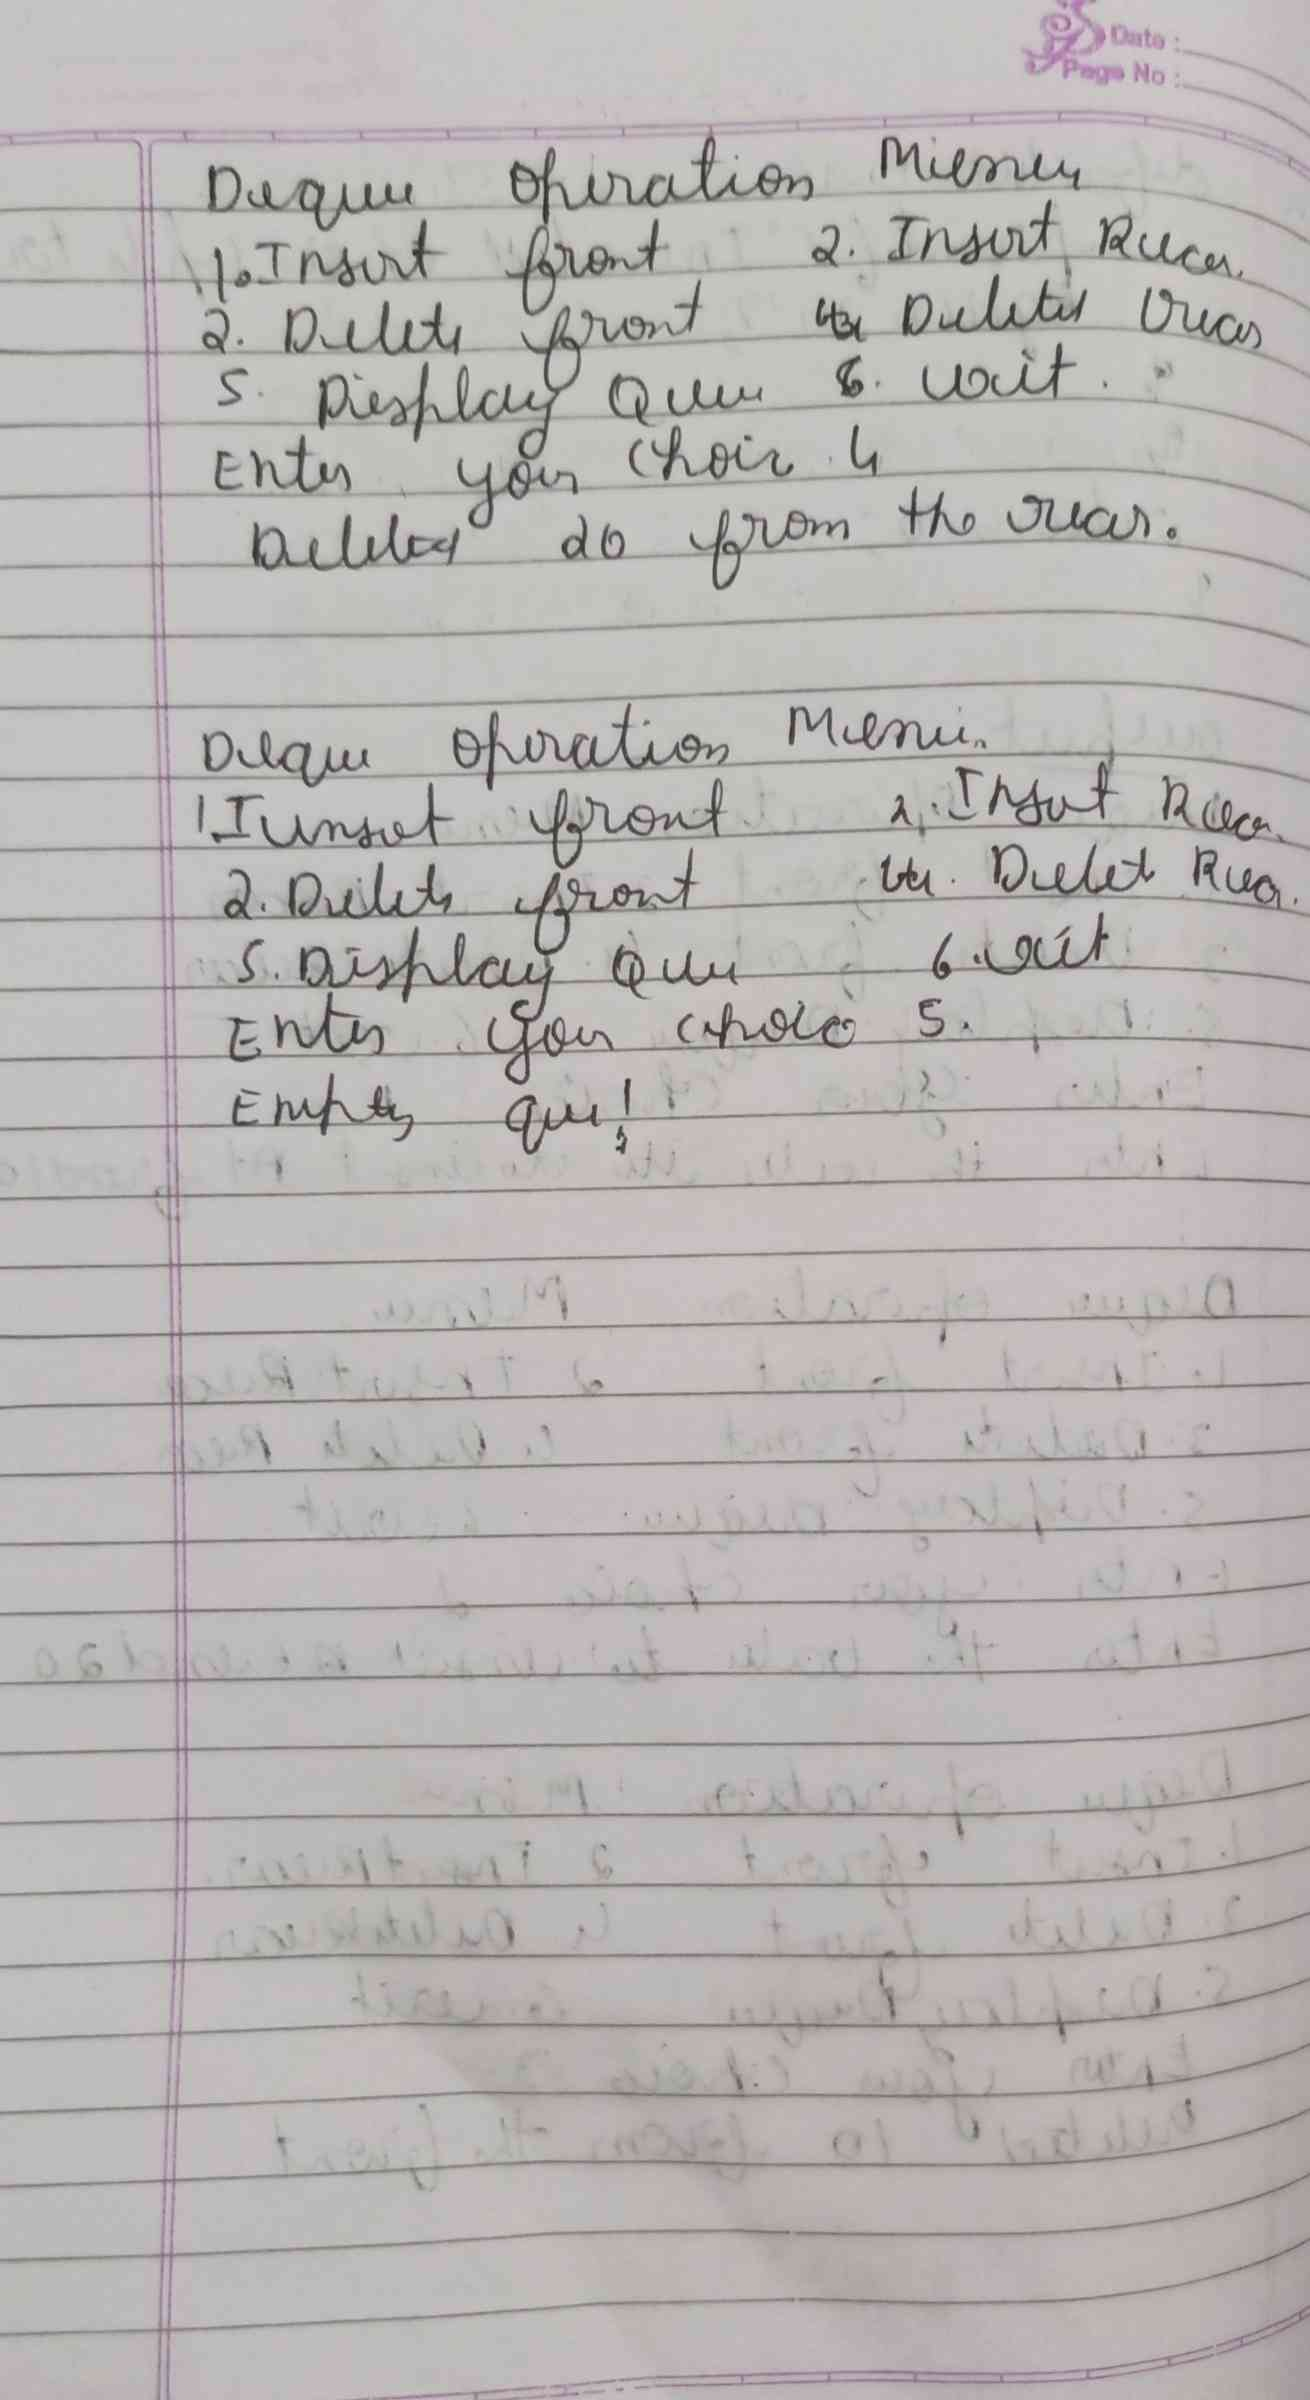 Date :
Page No :
Deque Operation Menu
1. Insert front 2. Insert Rear.
2. Delete front 4. Delete rear
5. Display Queue 6. exit.
Enter your choice 4
Deleted 20 from the rear.
Deque Operation Menu.
1 Insert front 2. Insert Rear.
2. Delete front 4. Delet Rear.
5. Display Queue 6. exit
Enter your choice 5.
Empty que!